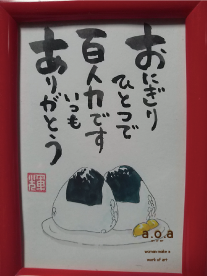 おにぎり
ひとつで
百人力です
いつも
ありがとう
a.o.a